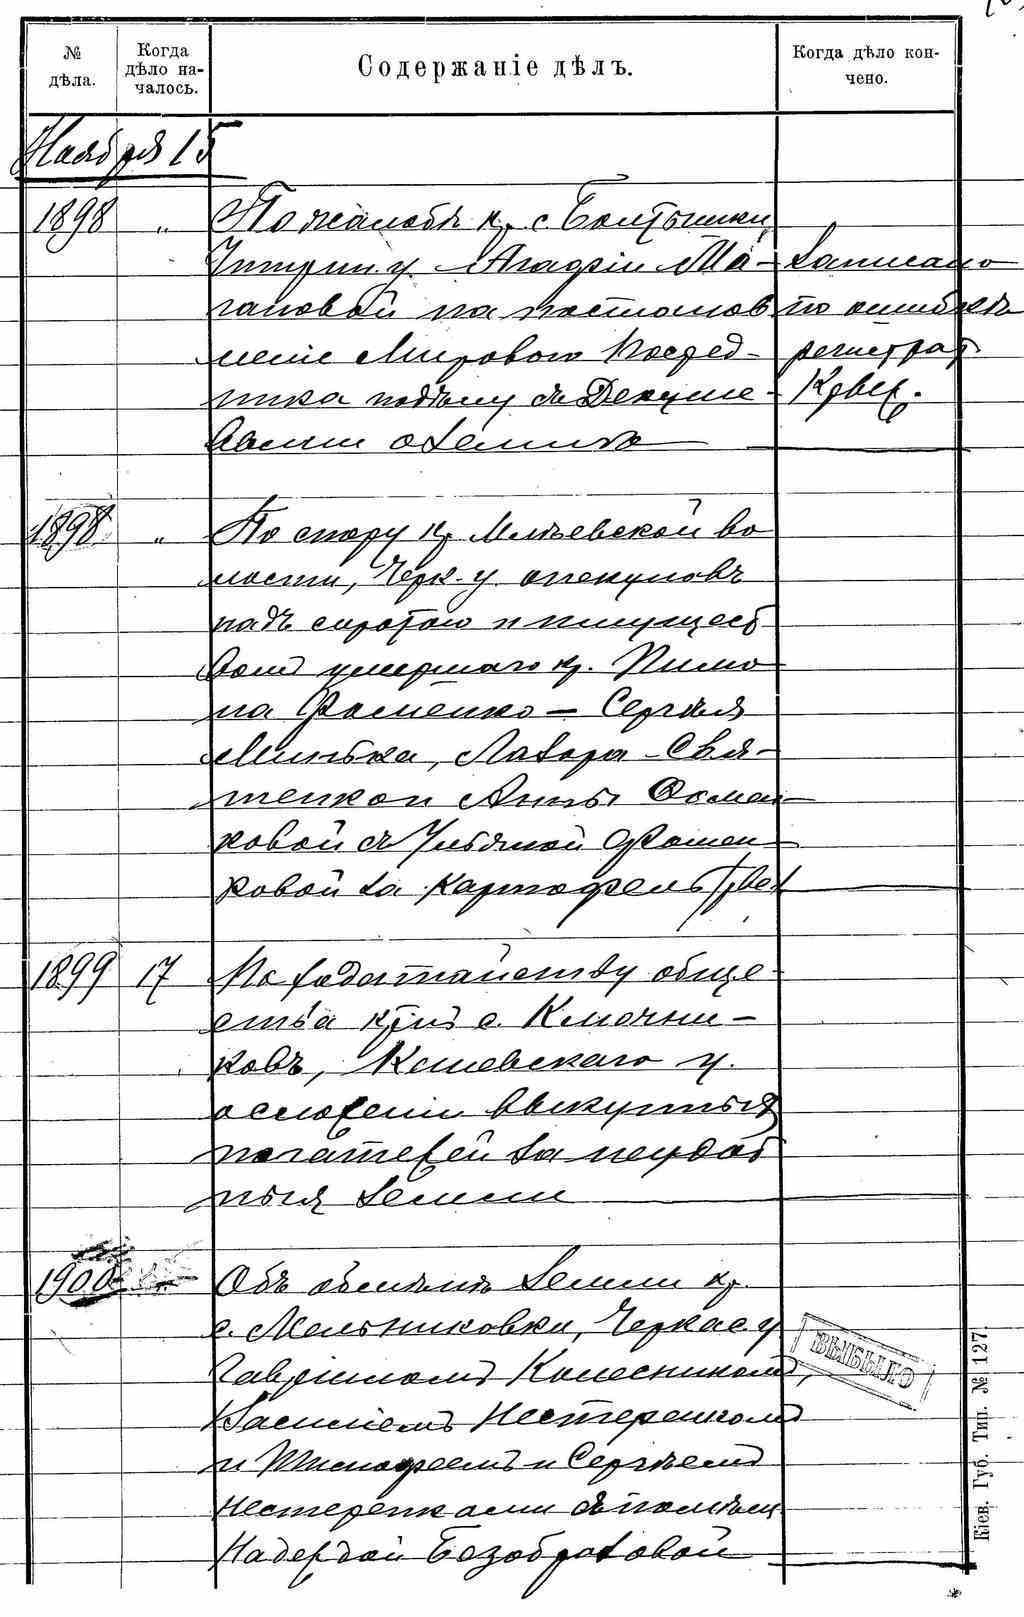 № дѣла.
Когда дѣло на-
чалось.
Содержаніе дѣлъ.
Когда дѣло кон-
чено.
Ноября 15
1898 „ По жалобѣ кр. с. Болтышки,
Чигрин. у. Агафіи Ма-
гановой на постанов
леніе Мироваго Посред-
ника по дѣлу съ
о землѣ
Записано
по ошибкѣ
регистрат.
1898 „ По спору кр. Млѣевской во
лости, Черк. у. опекуновъ
надъ сиротою и имущест
вомъ умершаго кр. Пимо
на Фоменко — Сергѣя
Минька, Лазора Свя-
тенкои Анны
ковой съ Ульяной Фомен
ковой за картофель
1899 17 По ходатайству обще-
ства кр. с. Ключни-
ковъ, Каневскаго у.
о сложеніи выкупныхъ
платежей за неудоб
ныя земли
1900 Объ обмѣнѣ земли кр.
с. Мельниковки, Черкас. у
Гавріиломъ Колесникомъ,
Василіемъ Нестеренкомъ
и Тимофеемъ и Сергѣемъ
Нестеренками съ помѣщ.
Надеждой Безобразовой
ВЫБЫЛО
Кіев. Губ. Тип. № 127.